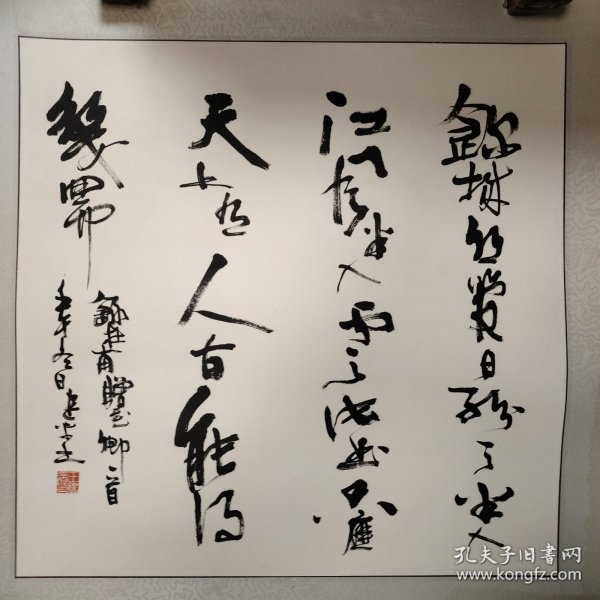 錦城絲管日紛々半入
江風半入雲此曲只應
天上有人間能得
幾回聞
錄杜甫贈花卿一首
冬日
孔夫子旧书网
www.kongfz.com